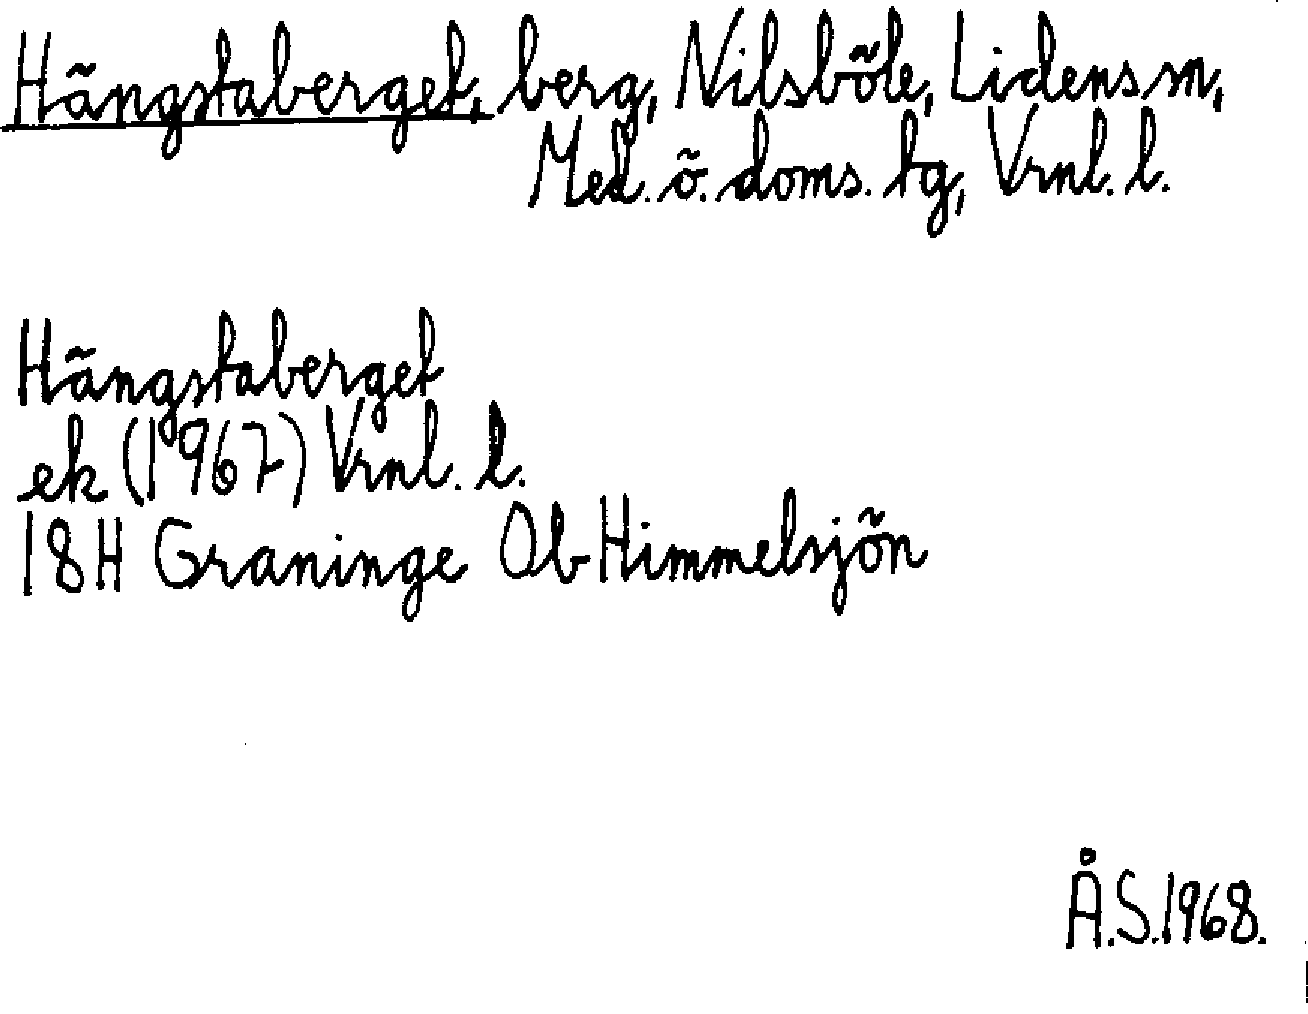 Hängstaberget, berg, Nilsböle, Lidens sn,
Med. ö. doms. tg, Vrnl. l.
Hängstaberget
ek (1967) Vrnl. l.
18H Graninge Ob Himmelsjön
Å.S.1968.